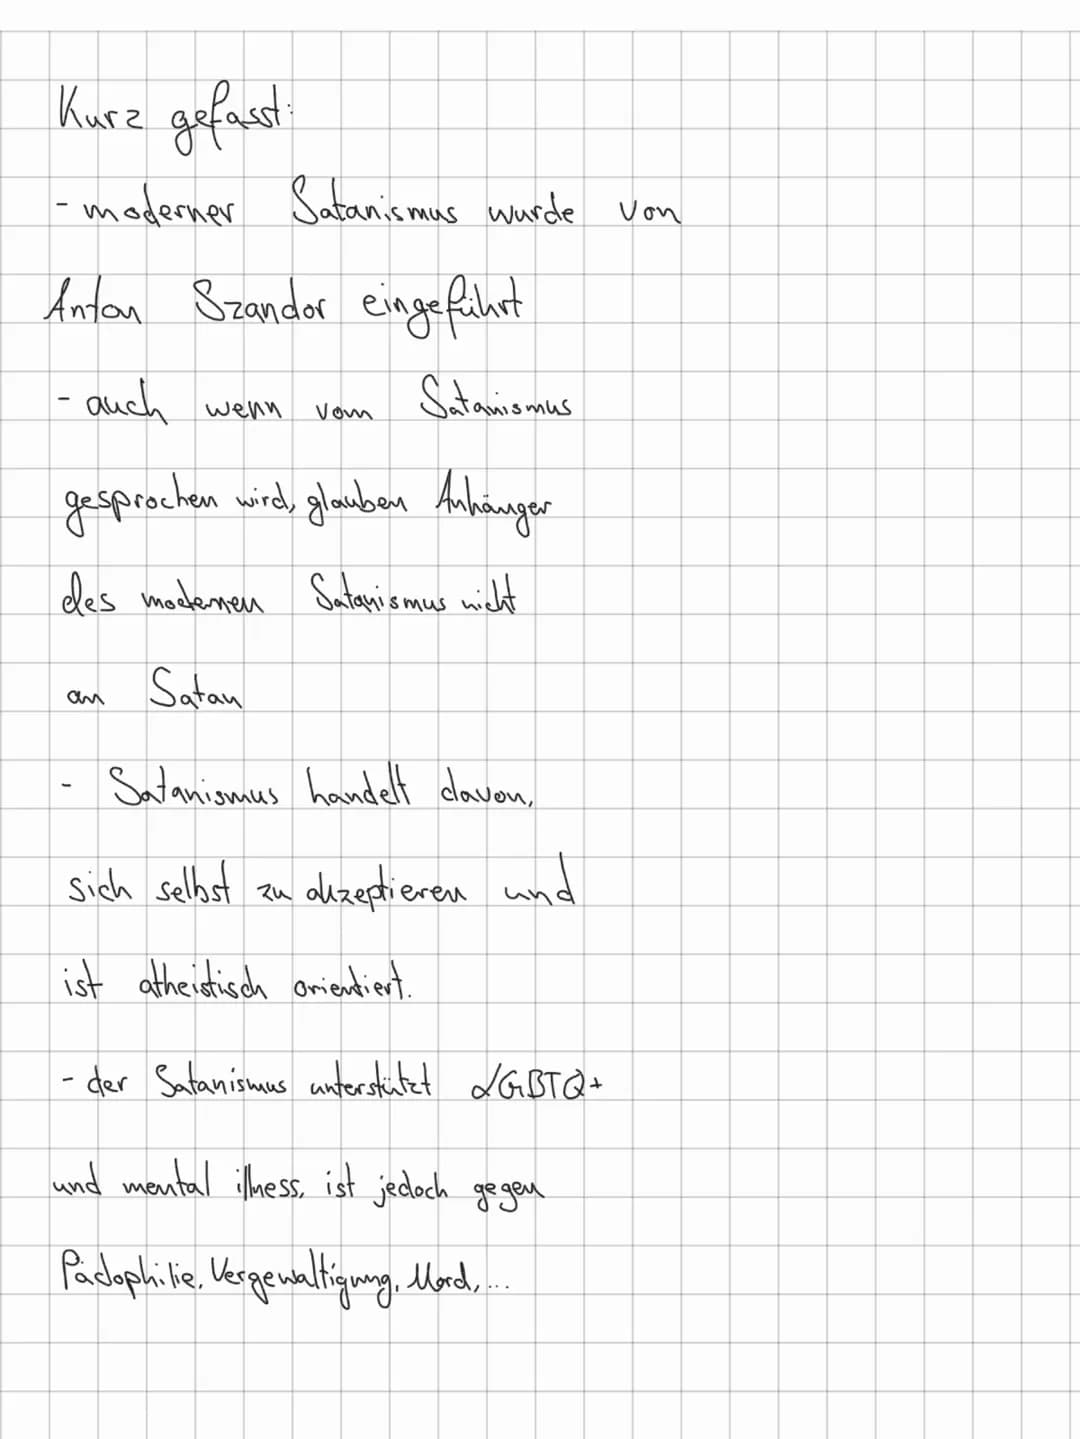 Kurz gefasst:
- moderner Satanismus wurde von
Anton Szandor eingeführt
- auch wenn vom Satanismus
gesprochen wird, glauben Anhänger
des modernen Satanismus nicht
an Satan
- Satanismus handelt davon,
sich selbst zu akzeptieren und
ist atheistisch orientiert.
- der Satanismus unterstützt LGBTQ+
und mental illness, ist jedoch gegen
Pädophilie, Vergewaltigung, Mord, ...